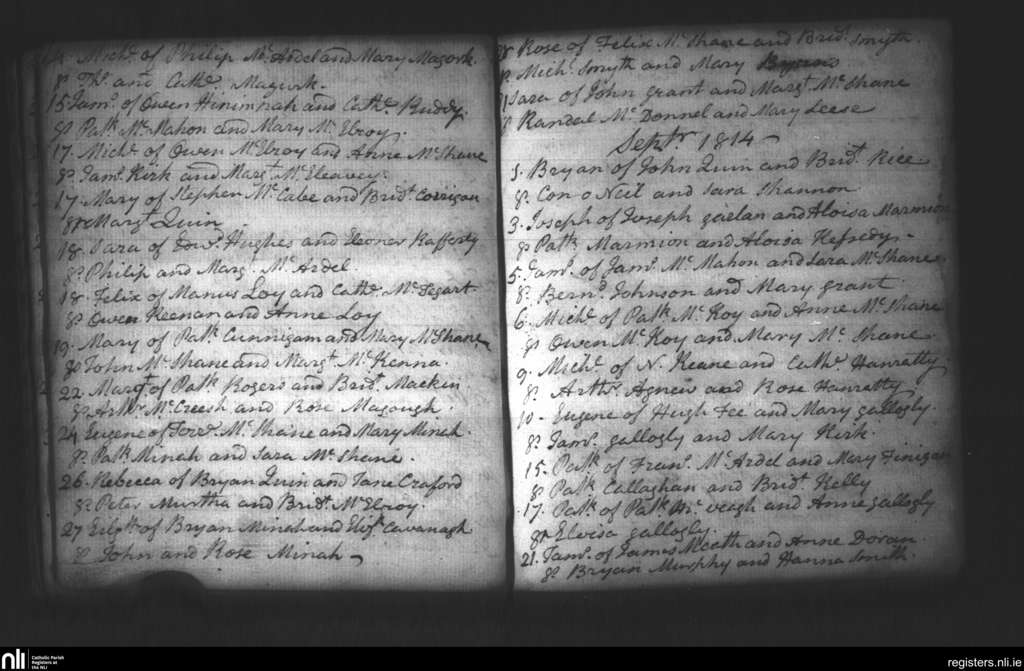 14. Mich.l of Philip Mc.Ardel and Mary Magork.
Sp. Th.s and Cath.e Magurk.
15 Jam.s of Owen Hinimnah and Cath.e Ruddy.
Sp Pat.k Mc.Mahon and Mary Mc.Elroy.
17. Mich.l of Owen Mc.Elroy and Anne Mc.Shane
Sp. Jam.s Kirk and Marg.t Mc.Eleavey.
17. Mary of Stephen Mc.Cabe and Brid.t Corrigan
Sp Marg.t Quin
18. Sara of Hughes and Eleoner Rafferty
Sp. Philip and Marg.t Mc.Ardel.
18. Felix of Manus Loy and Cath.e Mc.Tegart
Sp Owen Keenan and Anne Loy
19. Mary of Pat.k Cunnigam and Mary Mc.Shane
Sp John Mc.Shane and Marg.t Mc.Kenna.
22. Marg.t of Pat.k Rogers and Brid.t Mackin
Sp. Arth.r Mc.Creesh and Rose Magough.
24 Eugene of Mc.Shane and Mary Minah.
Sp. Pat.k Minah and Sara Mc.Shane.
26. Rebecca of Bryan Quin and Jane Craford
Sp. Peter Murtha and Brid.t Mc.Elroy.
27 of Bryan Minah and Cavanagh
Sp John and Rose Minah
Rose of Felix Mc.Shane and Brid.t Smyth.
Mich.l Smyth and Mary Byrne
Sara of John Grant and Marg.t Mc.Shane
Sp Randal Mc.Donnel and Mary Leese
Sept.r 1814
1. Bryan of John Quin and Brid.t Rice
Sp. Con o Neil and Sara Shannon
3. Joseph of Joseph Gaelan and Aloisa Marmion
Sp Pat.k Marmion and Aloisa Kefredy.
5. Jam.s of Jam.s Mc.Mahon and Sara Mc.Shane
Sp. Bern.d Johnson and Mary Grant
6. Mich.l of Pat.k Mc.Koy and Anne Mc.Shane
Sp Owen Mc.Koy and Mary Mc.Shane
9. Mich.l of N. Keane and Cath.e Hanratty.
Sp. Arth.r Agnew and Rose Hanratty
10. Eugene of Hugh Fee and Mary Gallogly.
Sp. Jam.s Gallogly and Mary Kirk.
15. Pat.k of Fran.s Mc.Ardel and Mary Finigan
Sp Pat.k Callaghan and Brid.t Kelly
17. Pat.k of Pat.k Mc.Veigh and Anne Gallogly
Sp. Elvisa Gallogly.
21. Jam.s of James Meath and Anne Doran.
Sp. Bryan Murphy and Hanna Smith.
nli
Catholic Parish
Registers at
the NLI
registers.nli.ie